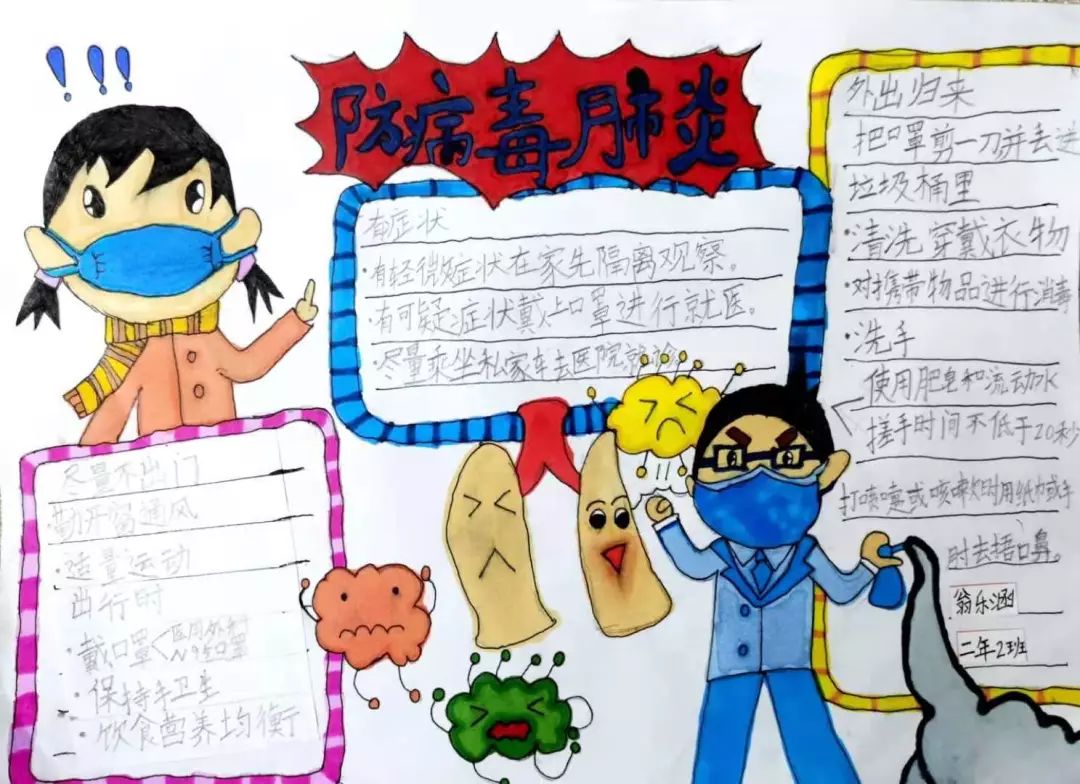 !!!
防病毒月肺炎
有症状
·有轻微症状在家先隔离观察。
·有可疑症状戴上口罩进行就医。
·尽量乘坐私家车去医院就诊
尽量不出门
勤开窗通风
·适量运动
出行时
·戴口罩<医用外科
N95口罩
·保持手卫生
·饮食营养均衡
外出归来
把口罩剪一刀并丢进
垃圾桶里
·清洗穿戴衣物
·对携带物品进行消毒
·洗手
使用肥皂和流动水
搓手时间不低于20秒
打喷嚏或咳嗽时用纸巾或手
肘去捂口鼻。
翁乐涵
二年2班